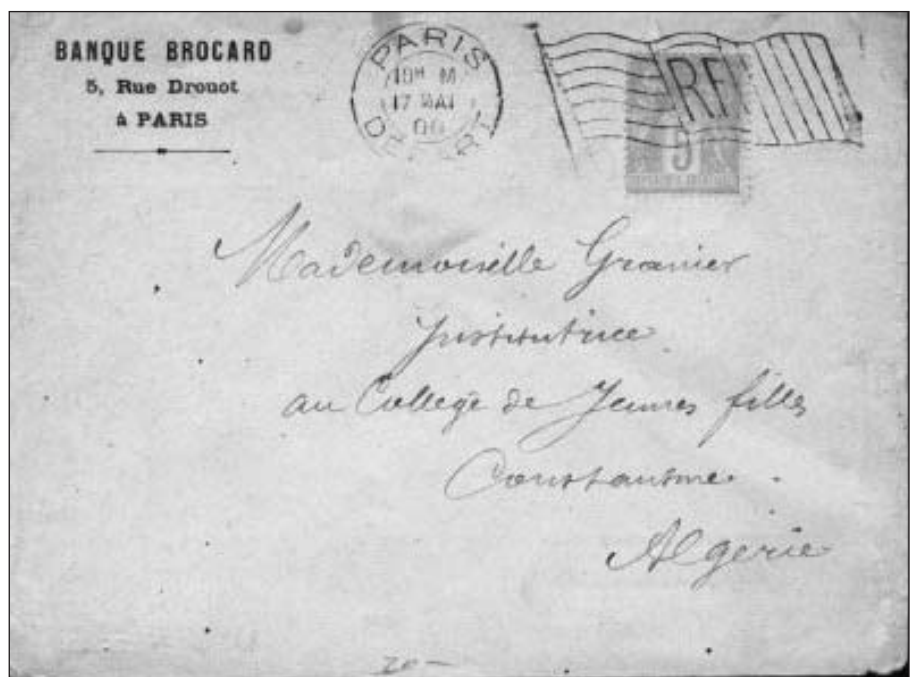 BANQUE BROCARD
5, Rue Drouot
à PARIS
PARIS
10H M
17 MAI
00
DEPART
RF
5
Mademoiselle Granier
Institutrice
au Collège de Jeunes filles
Constantine.
Algérie
20 -